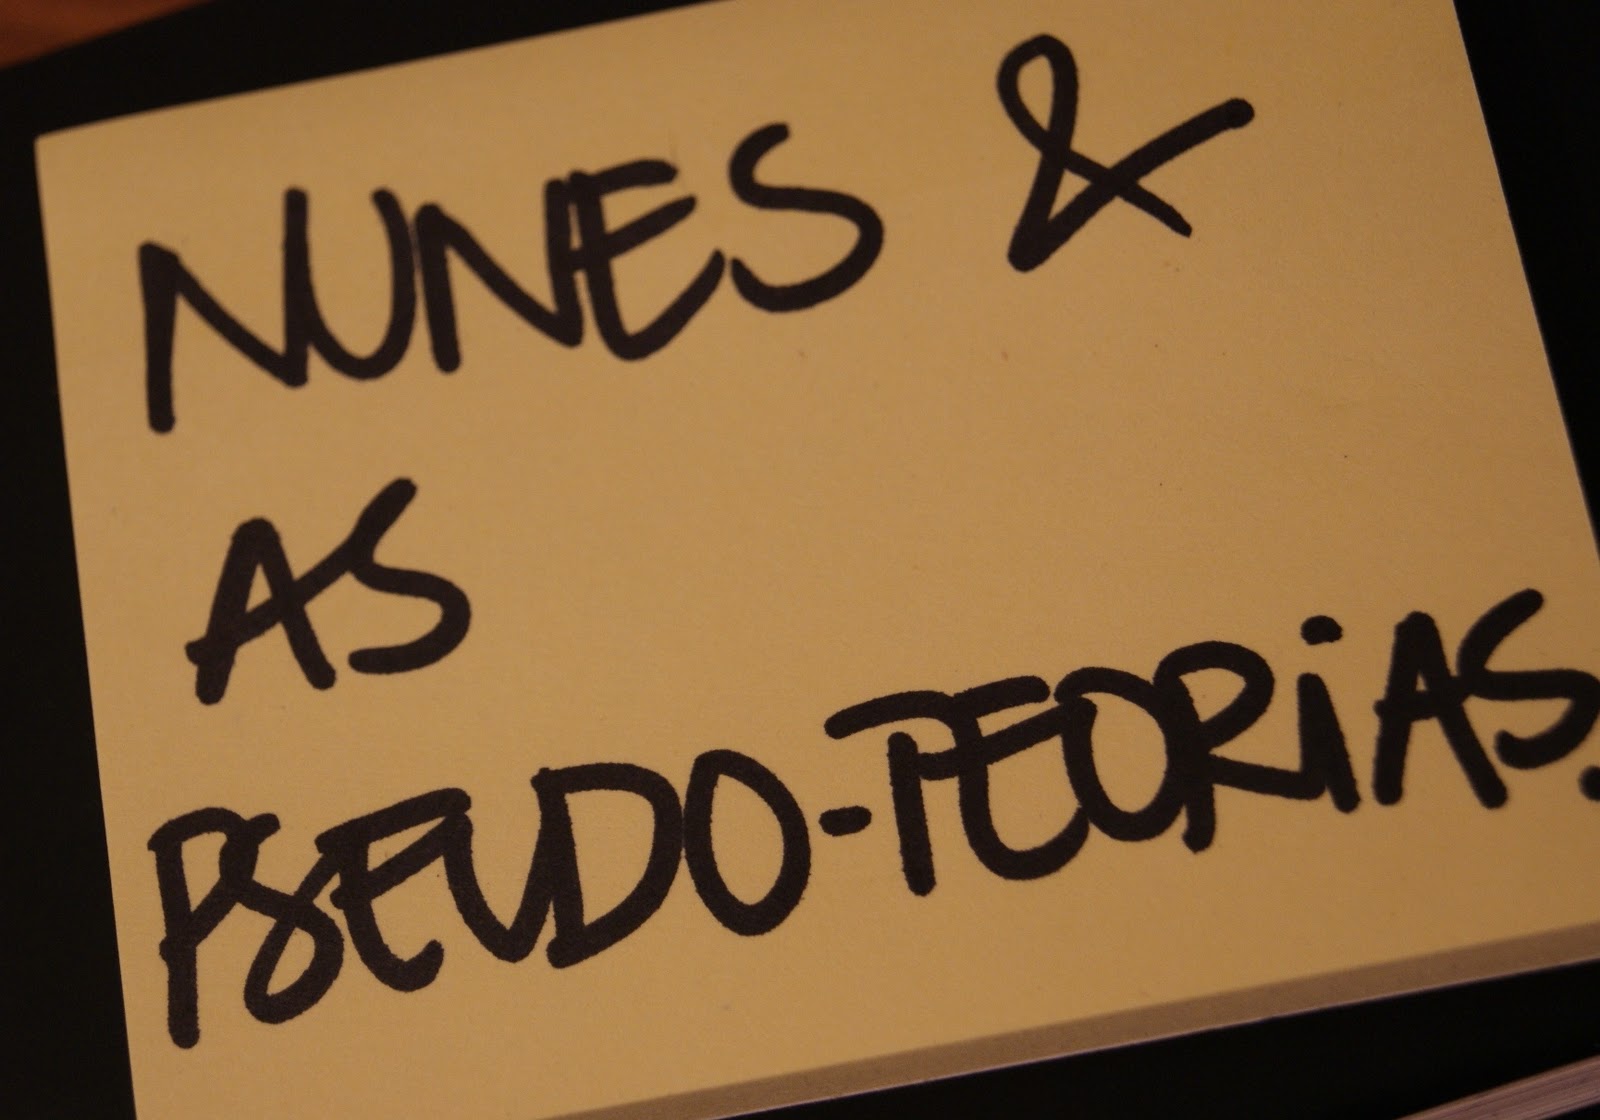 NUNES &
AS
PSEUDO-TEORIAS.